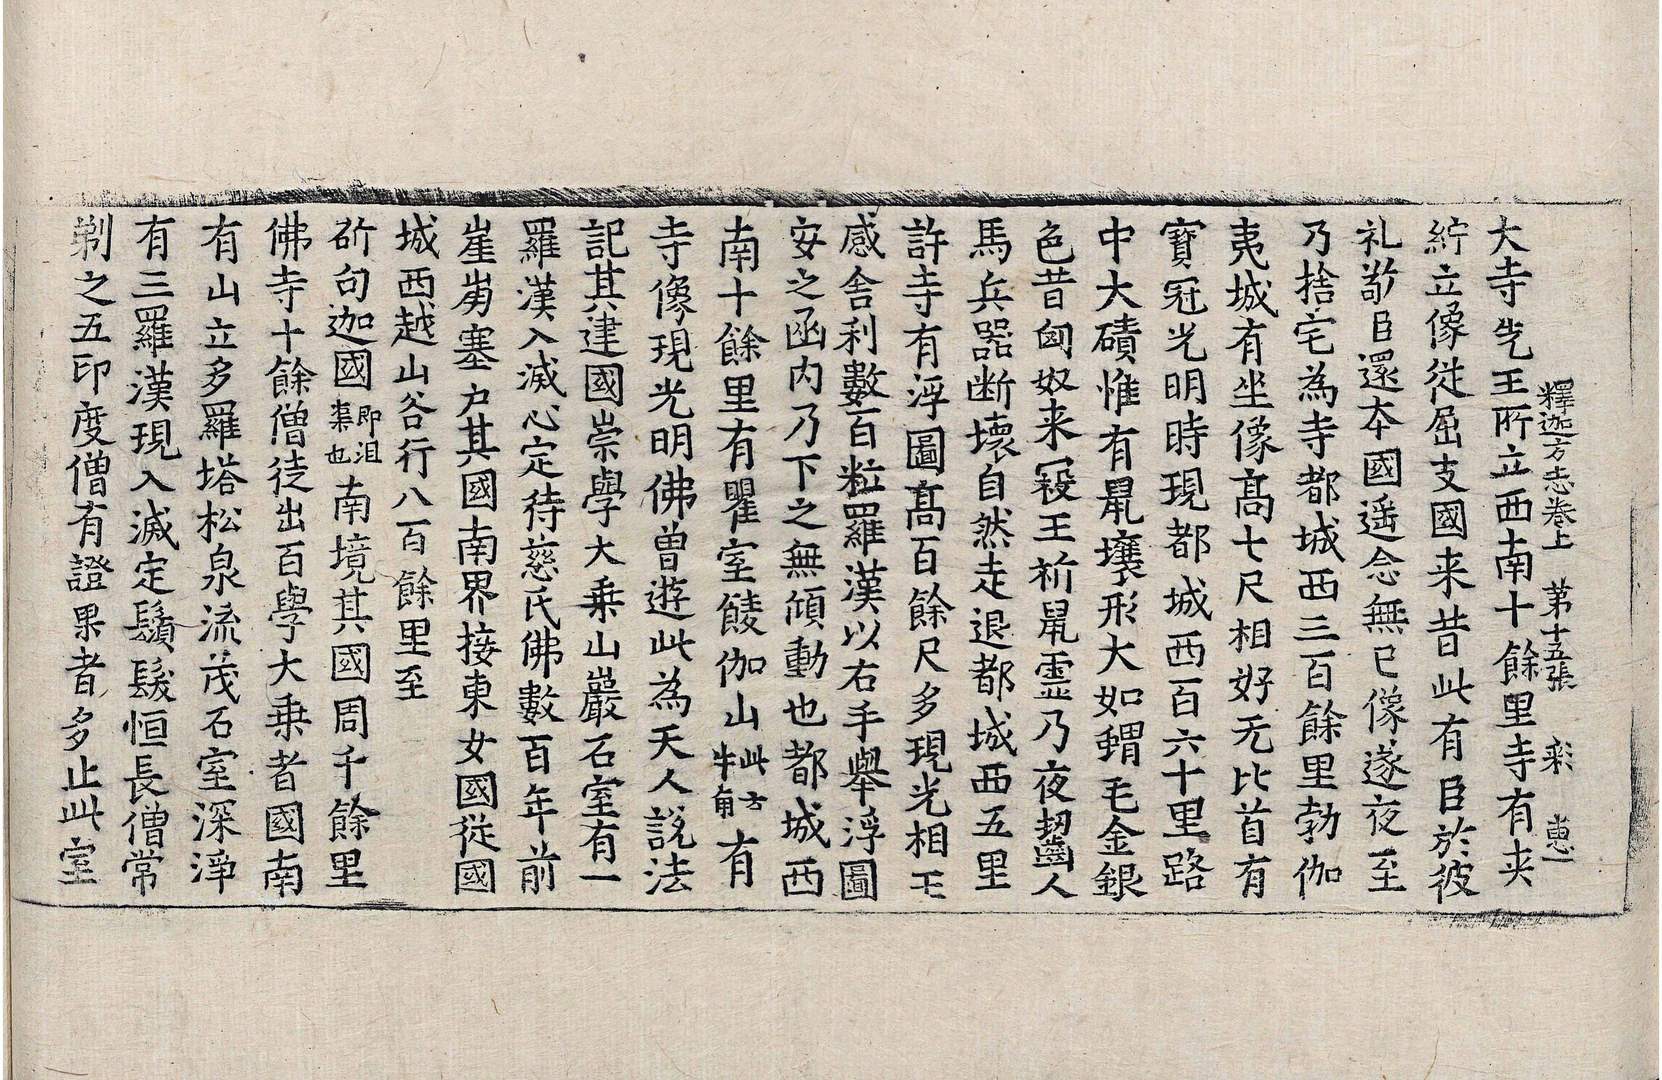 釋迦方志卷上 第十五張 彩 惠一
大寺先王所立西南十餘里寺有夹
紵立像從屈支國来昔此有臣於彼
礼敬臣還本國遥念無已像遂夜至
乃捨宅為寺都城西三百餘里勃伽
夷城有坐像高七尺相好无比首有
寶冠光明時現都城西百六十里路
中大磧惟有鼠壤形大如蝟毛金銀
色昔匈奴来寇王祈鼠靈乃夜齧人
馬兵器断壞自然走退都城西五里
許寺有浮圖高百餘尺多現光相王
感舍利數百粒羅漢以右手舉浮圖
安之函内乃下之無傾動也都城西
南十餘里有瞿室餕伽山此方牛角有
寺像現光明佛曽遊此為天人說法
記其建國崇學大乗山巖石室有一
羅漢入滅心定待慈氏佛數百年前
崖崩塞户其國南界接東女國從國
城西越山谷行八百餘里至
斫句迦國即沮渠也南境其國周千餘里
佛寺十餘僧徒出百學大乗者國南
有山立多羅塔松泉流茂石室深淨
有三羅漢現入滅定鬚髮恒長僧常
剃之五印度僧有證果者多止此室